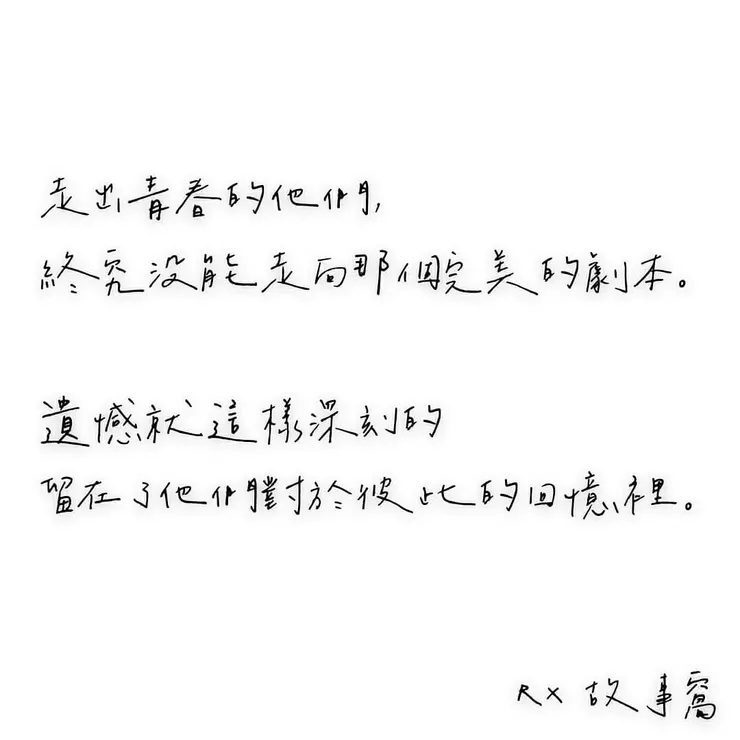 走出青春的他們,
終究没能走向那個完美的劇本。
遺憾就這樣深刻的
留在了他們對於彼此的回憶裡。
RX 故事窩